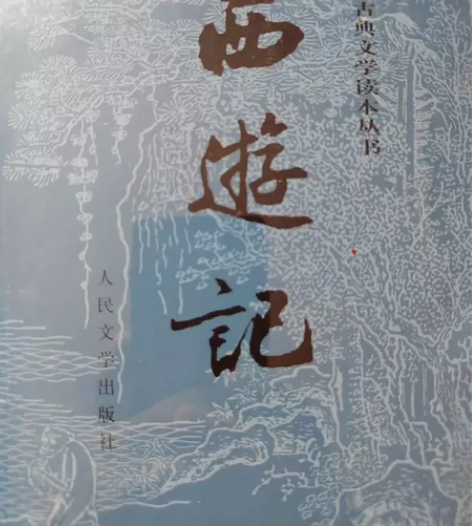 古典文学读本丛书
西遊記
人民文学出版社